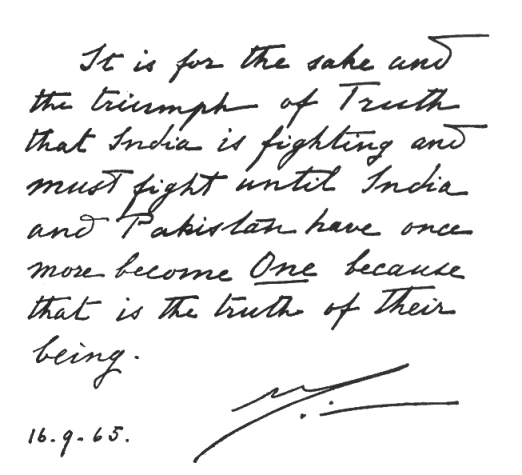 It is for the sake and
the triumph of Truth
that India is fighting and
must fight until India
and Pakistan have once
more become One because
that is the truth of their
being.
16.9.65.